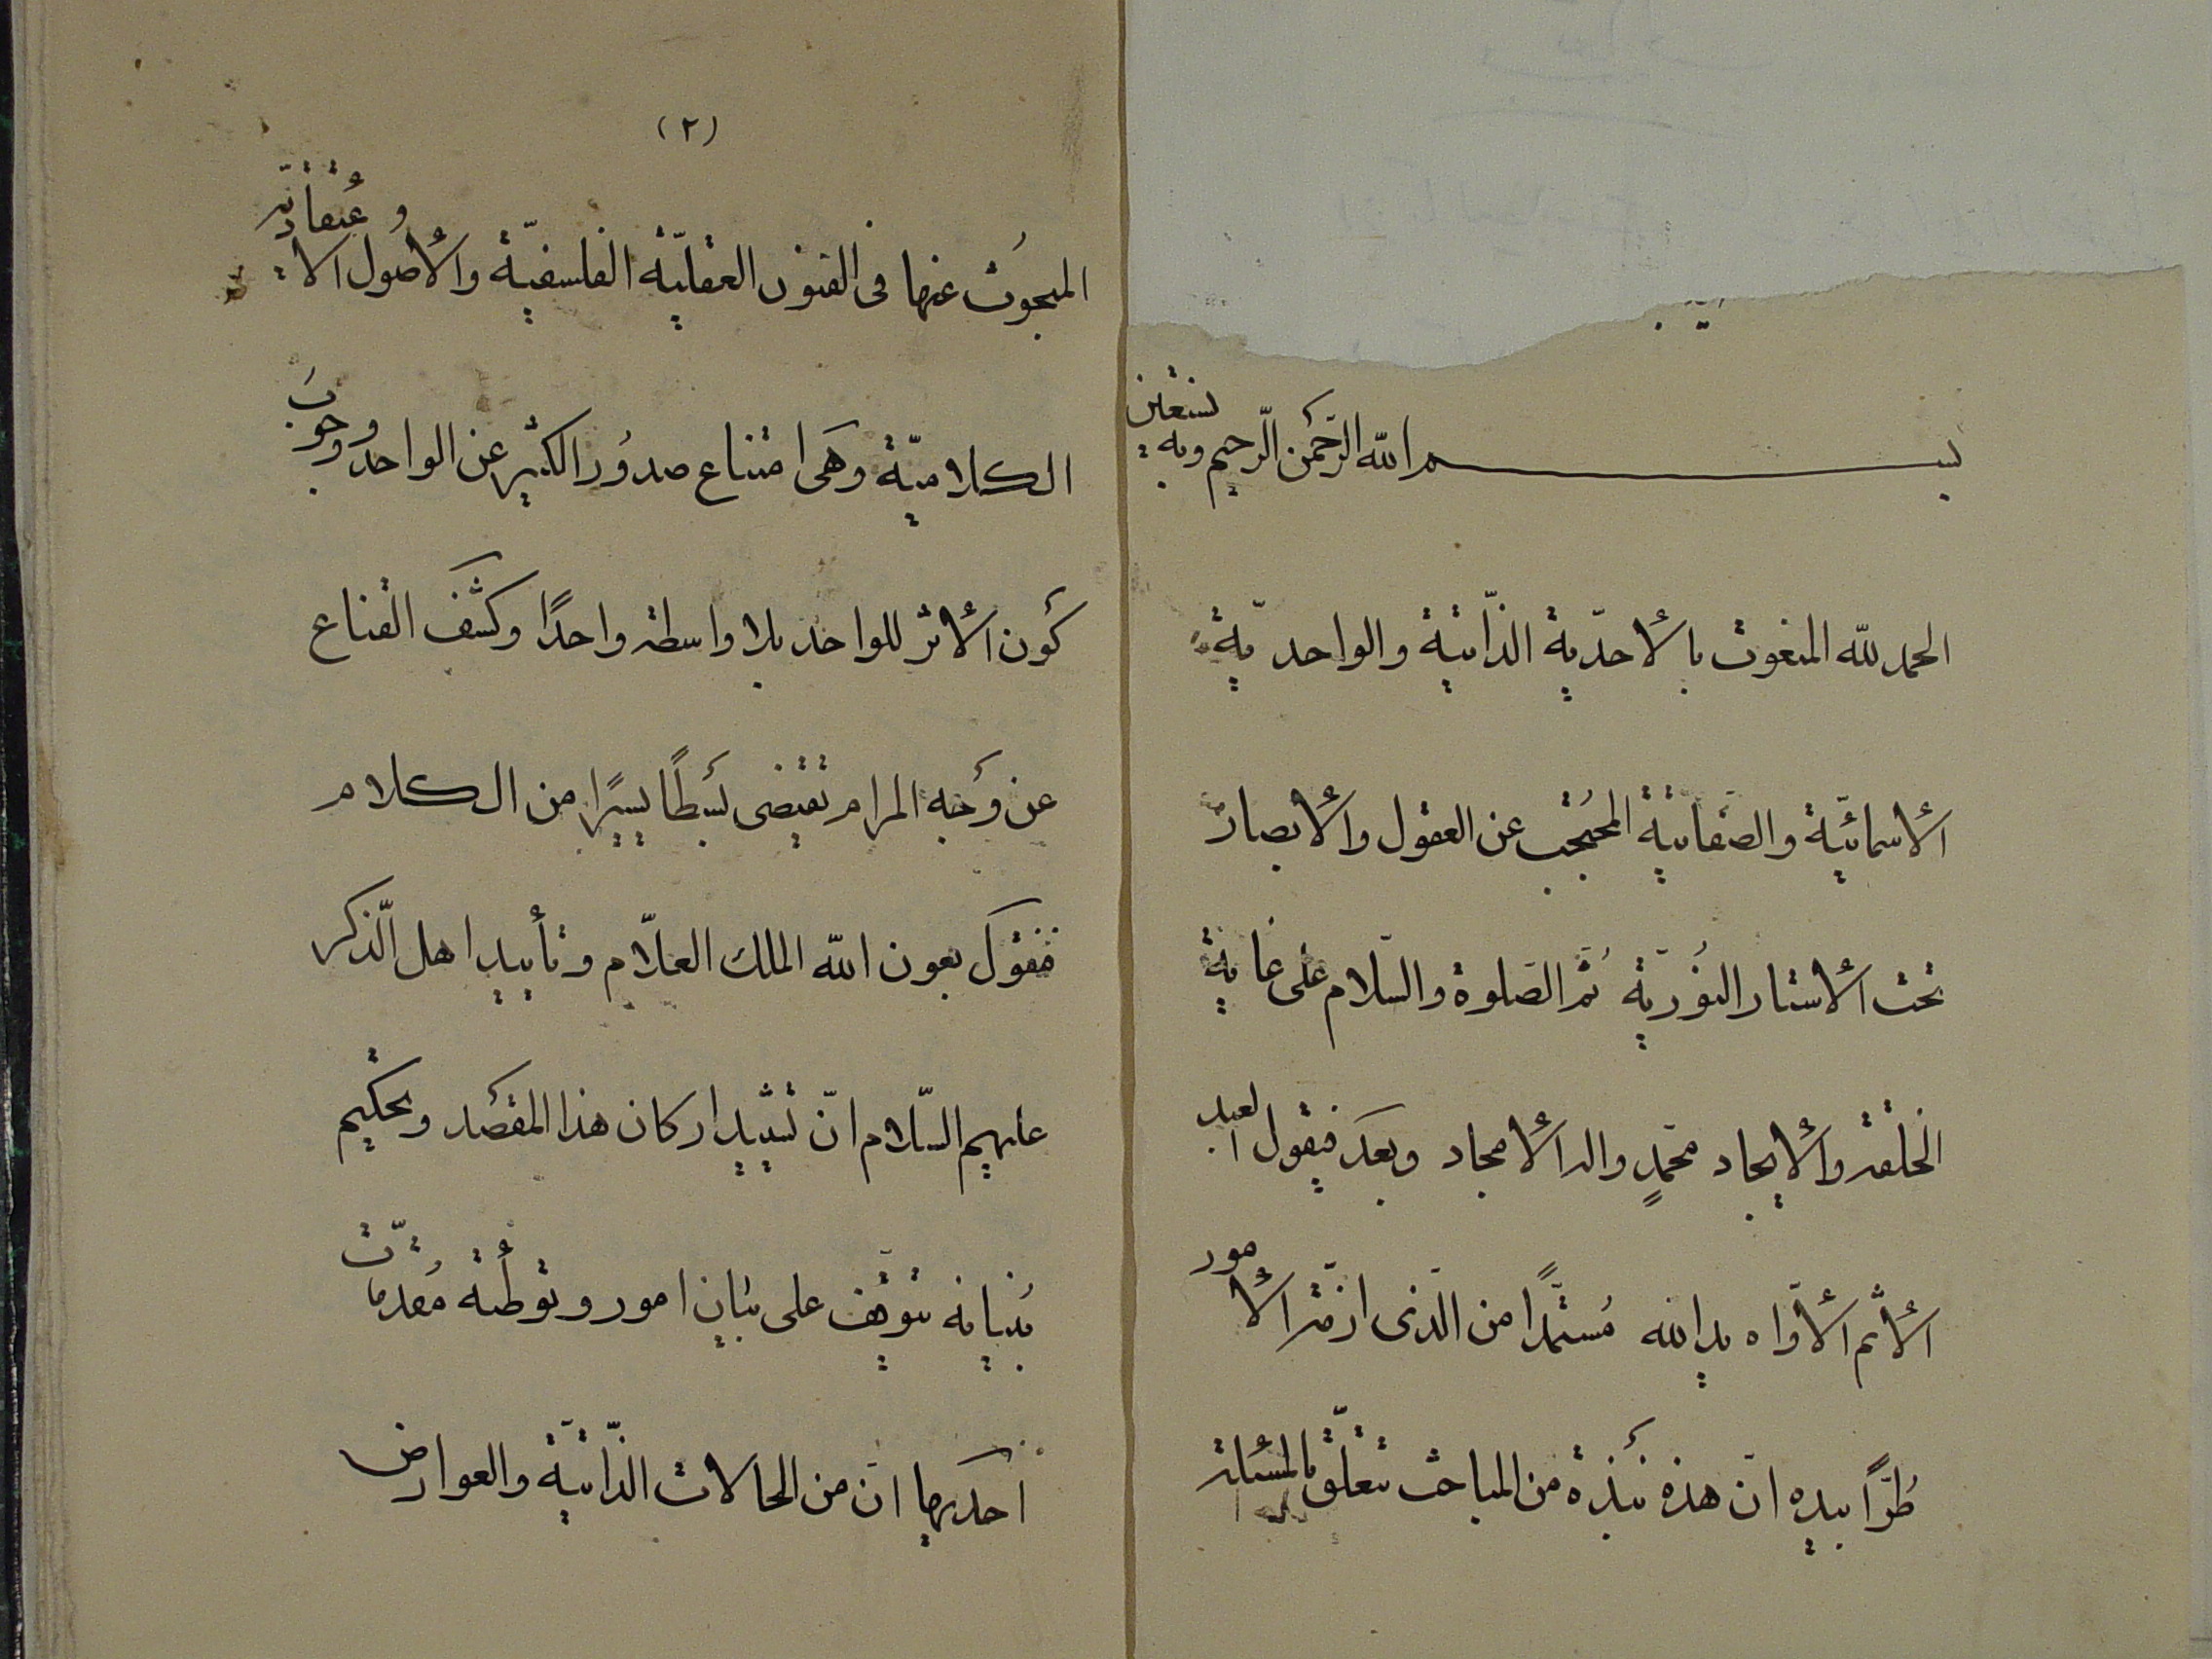 بسم الله الرّحمن الرّحيم وبه نستعين
الحمد لله المنعوت بالأحدّية الذّاتية والواحديّة
الأسمائيّة والصّفاتيّة المحتجب عن العقول والأبصار
تحت الأستار النوُريّة ثُمّ الصّلوة والسّلام على غاية
الخلقة والأيجاد محمّدٍ واله الأمجاد وبعَد فيقول العبد
الأثم الأوّاه يد الله مُستمدًّا من الّذى ازمّة الأمور
طُرًّا بيده انّ هذه نَبذة من المباحث تتعلّق بالمسئلة
(٢)
المبحوُث عنها فى الفنون العقليّة الفلسفيّة والأصُول الاعتقاديّة
الكلاميّة وهَى امتناع صدوُر الكثير عن الواحد ووجوبَ
كَون الأثر للواحد بلا واسطة واحدًا وكشَف القناع
عن وَجه المرام تقتضى بَسطًا يسيرًا من الكلام
فنقوَل بعون الله الملك العلّام وتأييد اهل الذّكر
عليهم السّلام انّ تشييد اركان هذا المقصَد وتحكيم
بُنيانه تتوقّف على بَيان امور وتوطئة مُقدّمات
احَديها انّ من الحالات الذّاتيّة والعوارض